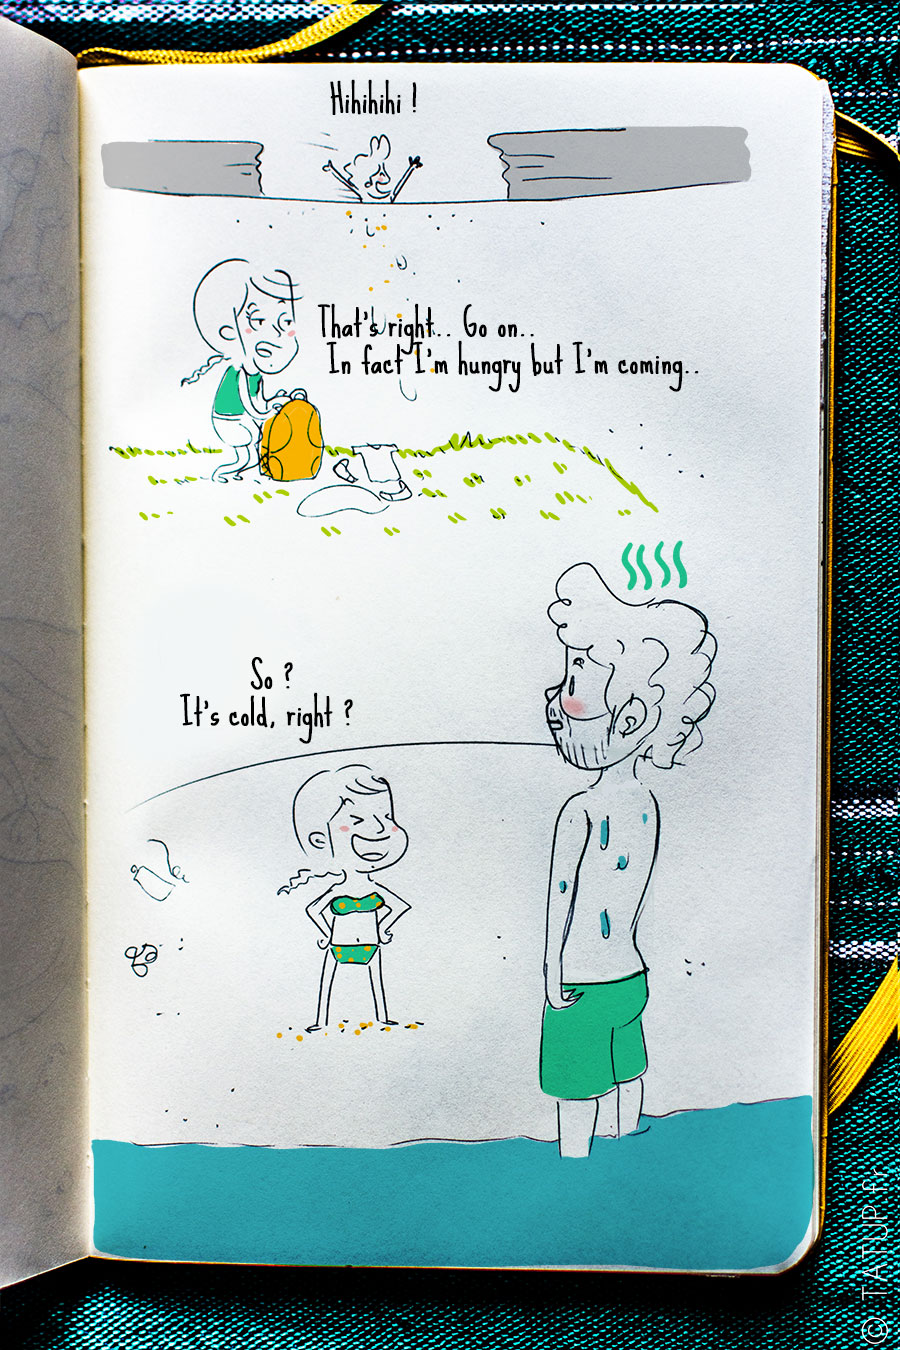 Hihihihi !
That's right.. Go on..
In fact I'm hungry but I'm coming..
So ?
It's cold, right ?
© TATUP.fr